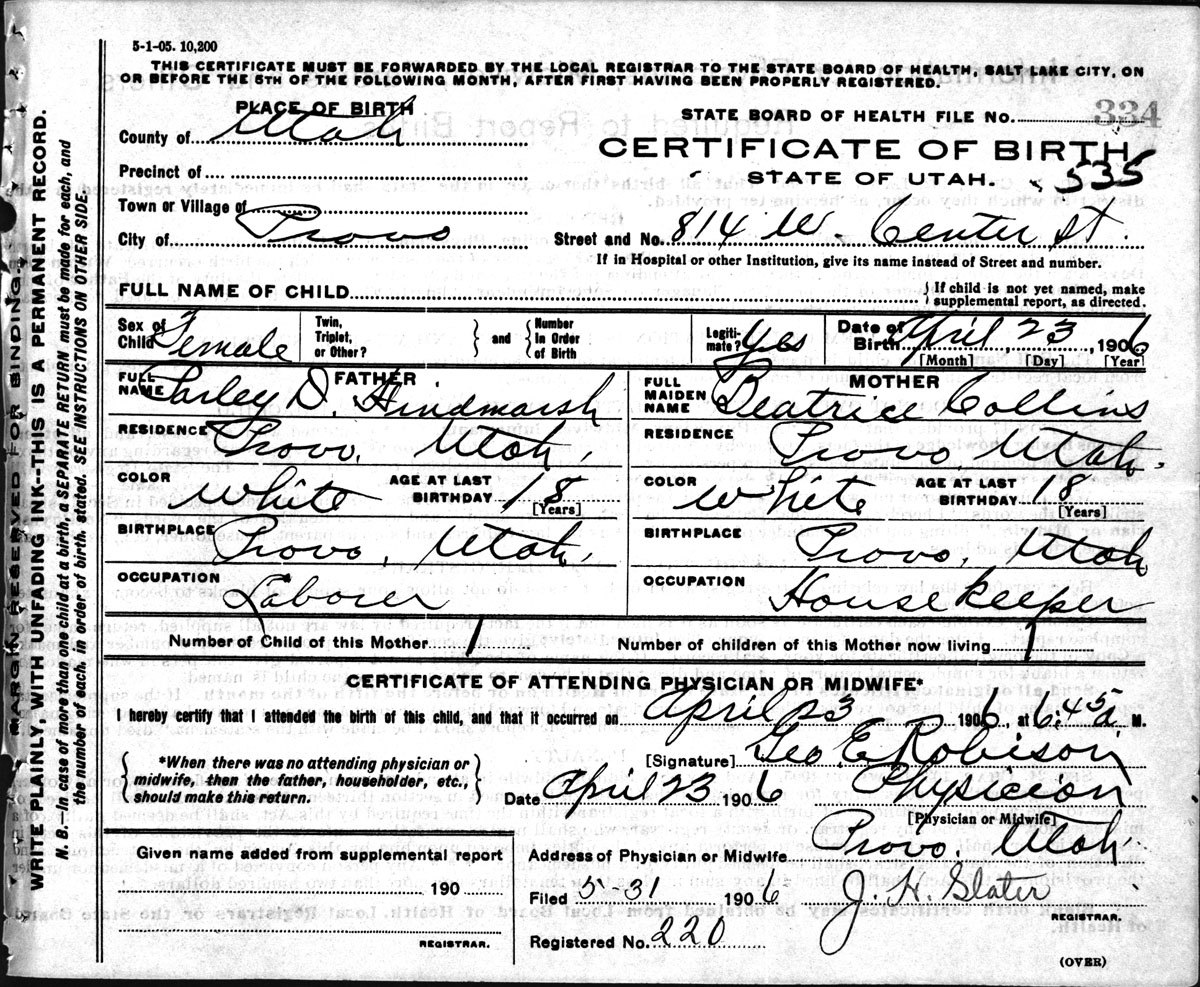 5-1-05. 10,200
THIS CERTIFICATE MUST BE FORWARDED BY THE LOCAL REGISTRAR TO THE STATE BOARD OF HEALTH, SALT LAKE CITY, ON
OR BEFORE THE 5TH OF THE FOLLOWING MONTH, AFTER FIRST HAVING BEEN PROPERLY REGISTERED.
PLACE OF BIRTH
STATE BOARD OF HEALTH FILE NO. 334
County of Utah
CERTIFICATE OF BIRTH
Precinct of
STATE OF UTAH. 535
Town or Village of
City of Provo Street and No. 814 W. Center St.
If in Hospital or other Institution, give its name instead of Street and number.
FULL NAME OF CHILD { If child is not yet named, make
supplemental report, as directed.
Sex of Child Female Twin, Triplet, or Other? } and { Number In Order of Birth Legitimate? yes Date of Birth April 23, 1906
[Month] [Day] [Year]
FATHER MOTHER
FULL NAME D. Hindmarsh FULL MAIDEN NAME Beatrice Collins
RESIDENCE Provo, Utah, RESIDENCE Provo Utah.
COLOR White AGE AT LAST BIRTHDAY 18 [Years] COLOR White AGE AT LAST BIRTHDAY 18 [Years]
BIRTHPLACE Provo, Utah, BIRTHPLACE Provo, Utah
OCCUPATION Laborer OCCUPATION Housekeeper
Number of Child of this Mother 1 Number of children of this Mother now living 1
CERTIFICATE OF ATTENDING PHYSICIAN OR MIDWIFE*
I hereby certify that I attended the birth of this child, and that it occurred on April 23 1906, at 6:45 a M.
*When there was no attending physician or
midwife, then the father, householder, etc.,
should make this return.
[Signature] Geo E. Robison
Date April 23 1906 Physician
[Physician or Midwife]
Given name added from supplemental report
190
REGISTRAR.
Address of Physician or Midwife Provo, Utah
Filed 5-31 1906 J. H. Slater
REGISTRAR.
Registered No. 220
(OVER)
MARGIN RESERVED FOR BINDING.
WRITE PLAINLY WITH UNFADING INK--THIS IS A PERMANENT RECORD.
N. B. In case of more than one child at a birth, a SEPARATE RETURN must be made for each, and
the number of each, in order of birth, stated. SEE INSTRUCTIONS ON OTHER SIDE.